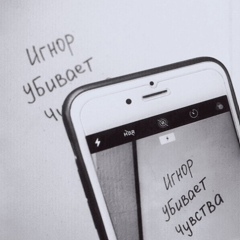 Игнор
убивает
чу
HDR
Игнор
убивает
чувства